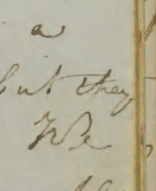 a
but they
We